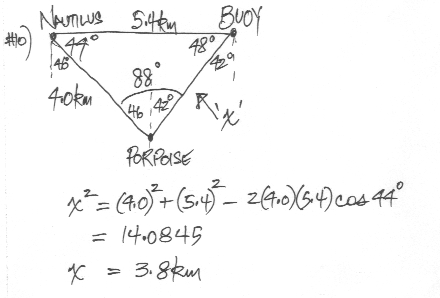 #10) NAUTILUS 5.4km BUOY
44° 48°
46° 42°
88°
4.0km 46 42° 'x'
PORPOISE
x² = (4.0)² + (5.4)² - 2(4.0)(5.4) cos 44°
= 14.0845
x = 3.8km